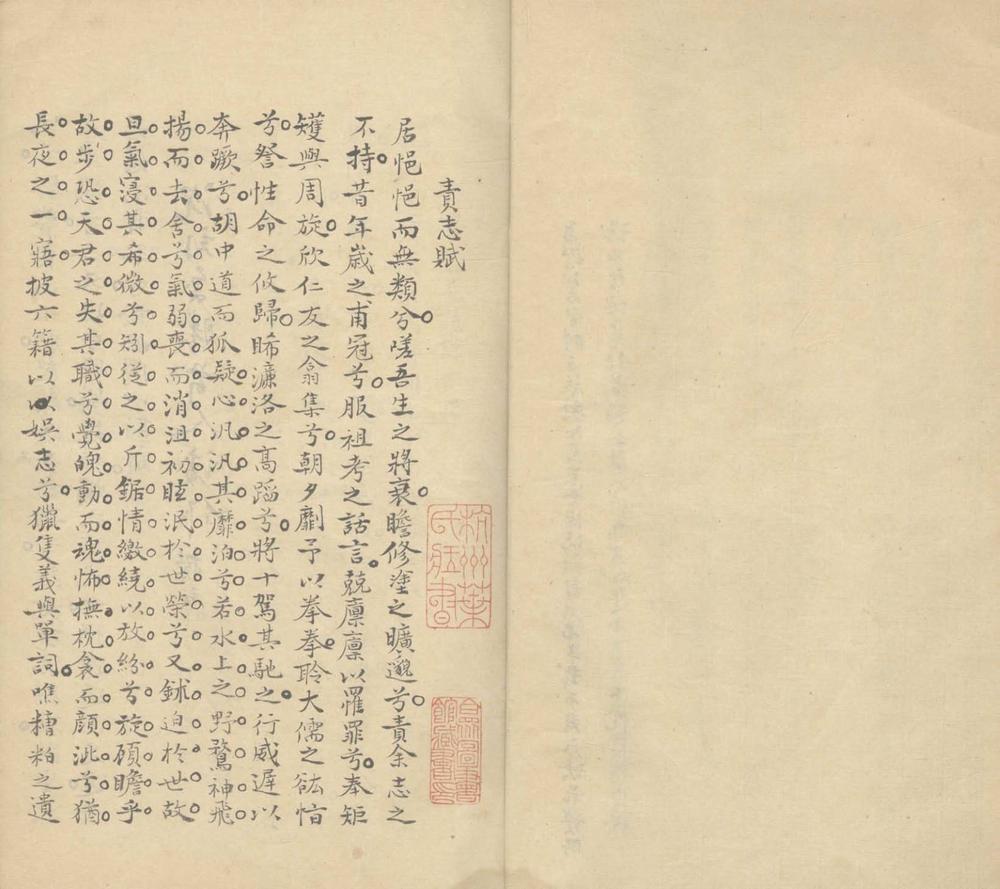 責志賦
居悒悒而無類兮嗟吾生之將衰瞻修塗之曠邈兮責余志之
不持昔年歲之甫冠兮服祖考之話言兢廩廩以罹罪兮奉矩
矱與周旋欣仁友之翕集兮朝夕劘予以拳拳聆大儒之竑愔
兮詧性命之攸歸睎濂洛之高蹈兮將十駕其馳之行威遲以
奔蹶兮胡中道而狐疑心汎汎其靡泊兮若水上之野鶩神飛
揚而去舍兮氣弱喪而消沮初眩泯於世榮兮又鉥迫於世故
旦氣寖其希微兮矧從之以斤鋸情繳繞以放紛兮旋顧瞻乎
故步恐天君之失其職兮覺魄動而魂怖撫枕衾而顏泚兮猶
長夜之一寤披六籍以娛志兮獵隻義與單詞噍糟粕之遺
杭州葉氏藏書
圖書館藏書